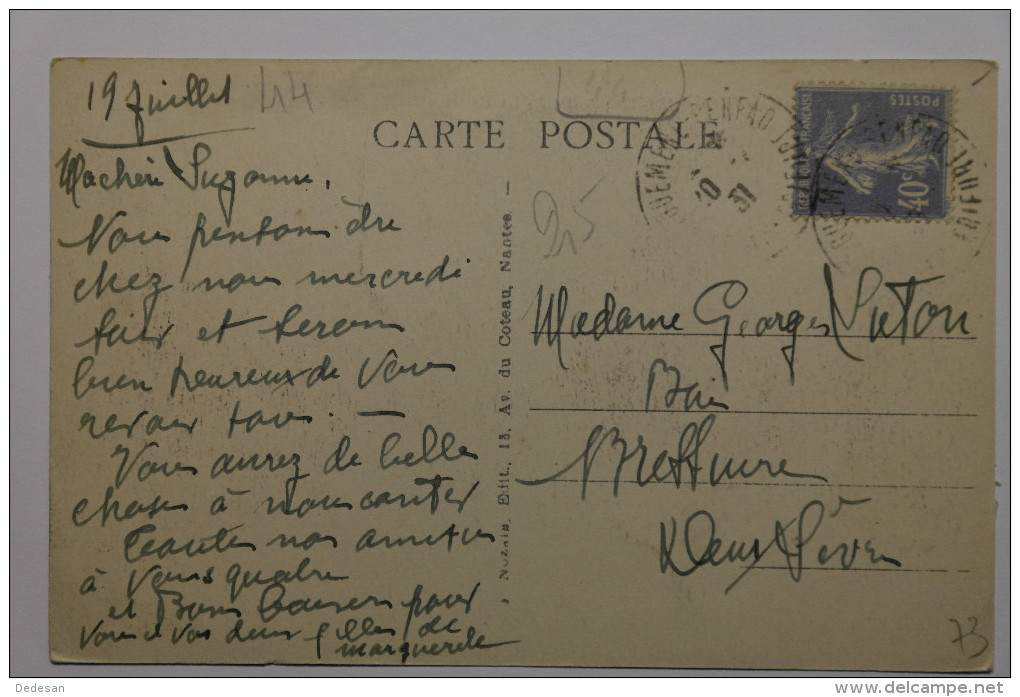 19 Juillet 44
44
CARTE POSTALE
GUEMENE-PENFAO
20
37
POSTES
40c
Ma chérie Suzanne,
Nous pensons être
chez nous mercredi
soir et serons
bien heureux de vous
revoir tous. —
Vous aurez de belles
choses à nous conter
Toutes nos amitiés
à vous quatre
et Bons baisers pour
vous et vos deux filles de
marguerite
25
Nozais, Edit., 13, Av. du Coteau, Nantes
Madame Georges
Bressuire
Deux Sèvres
73
Dedesan
http://www.delcampe.net